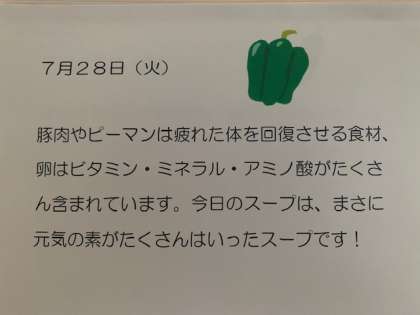 7月28日（火）
豚肉やピーマンは疲れた体を回復させる食材、
卵はビタミン・ミネラル・アミノ酸がたくさ
ん含まれています。今日のスープは、まさに
元気の素がたくさんはいったスープです！